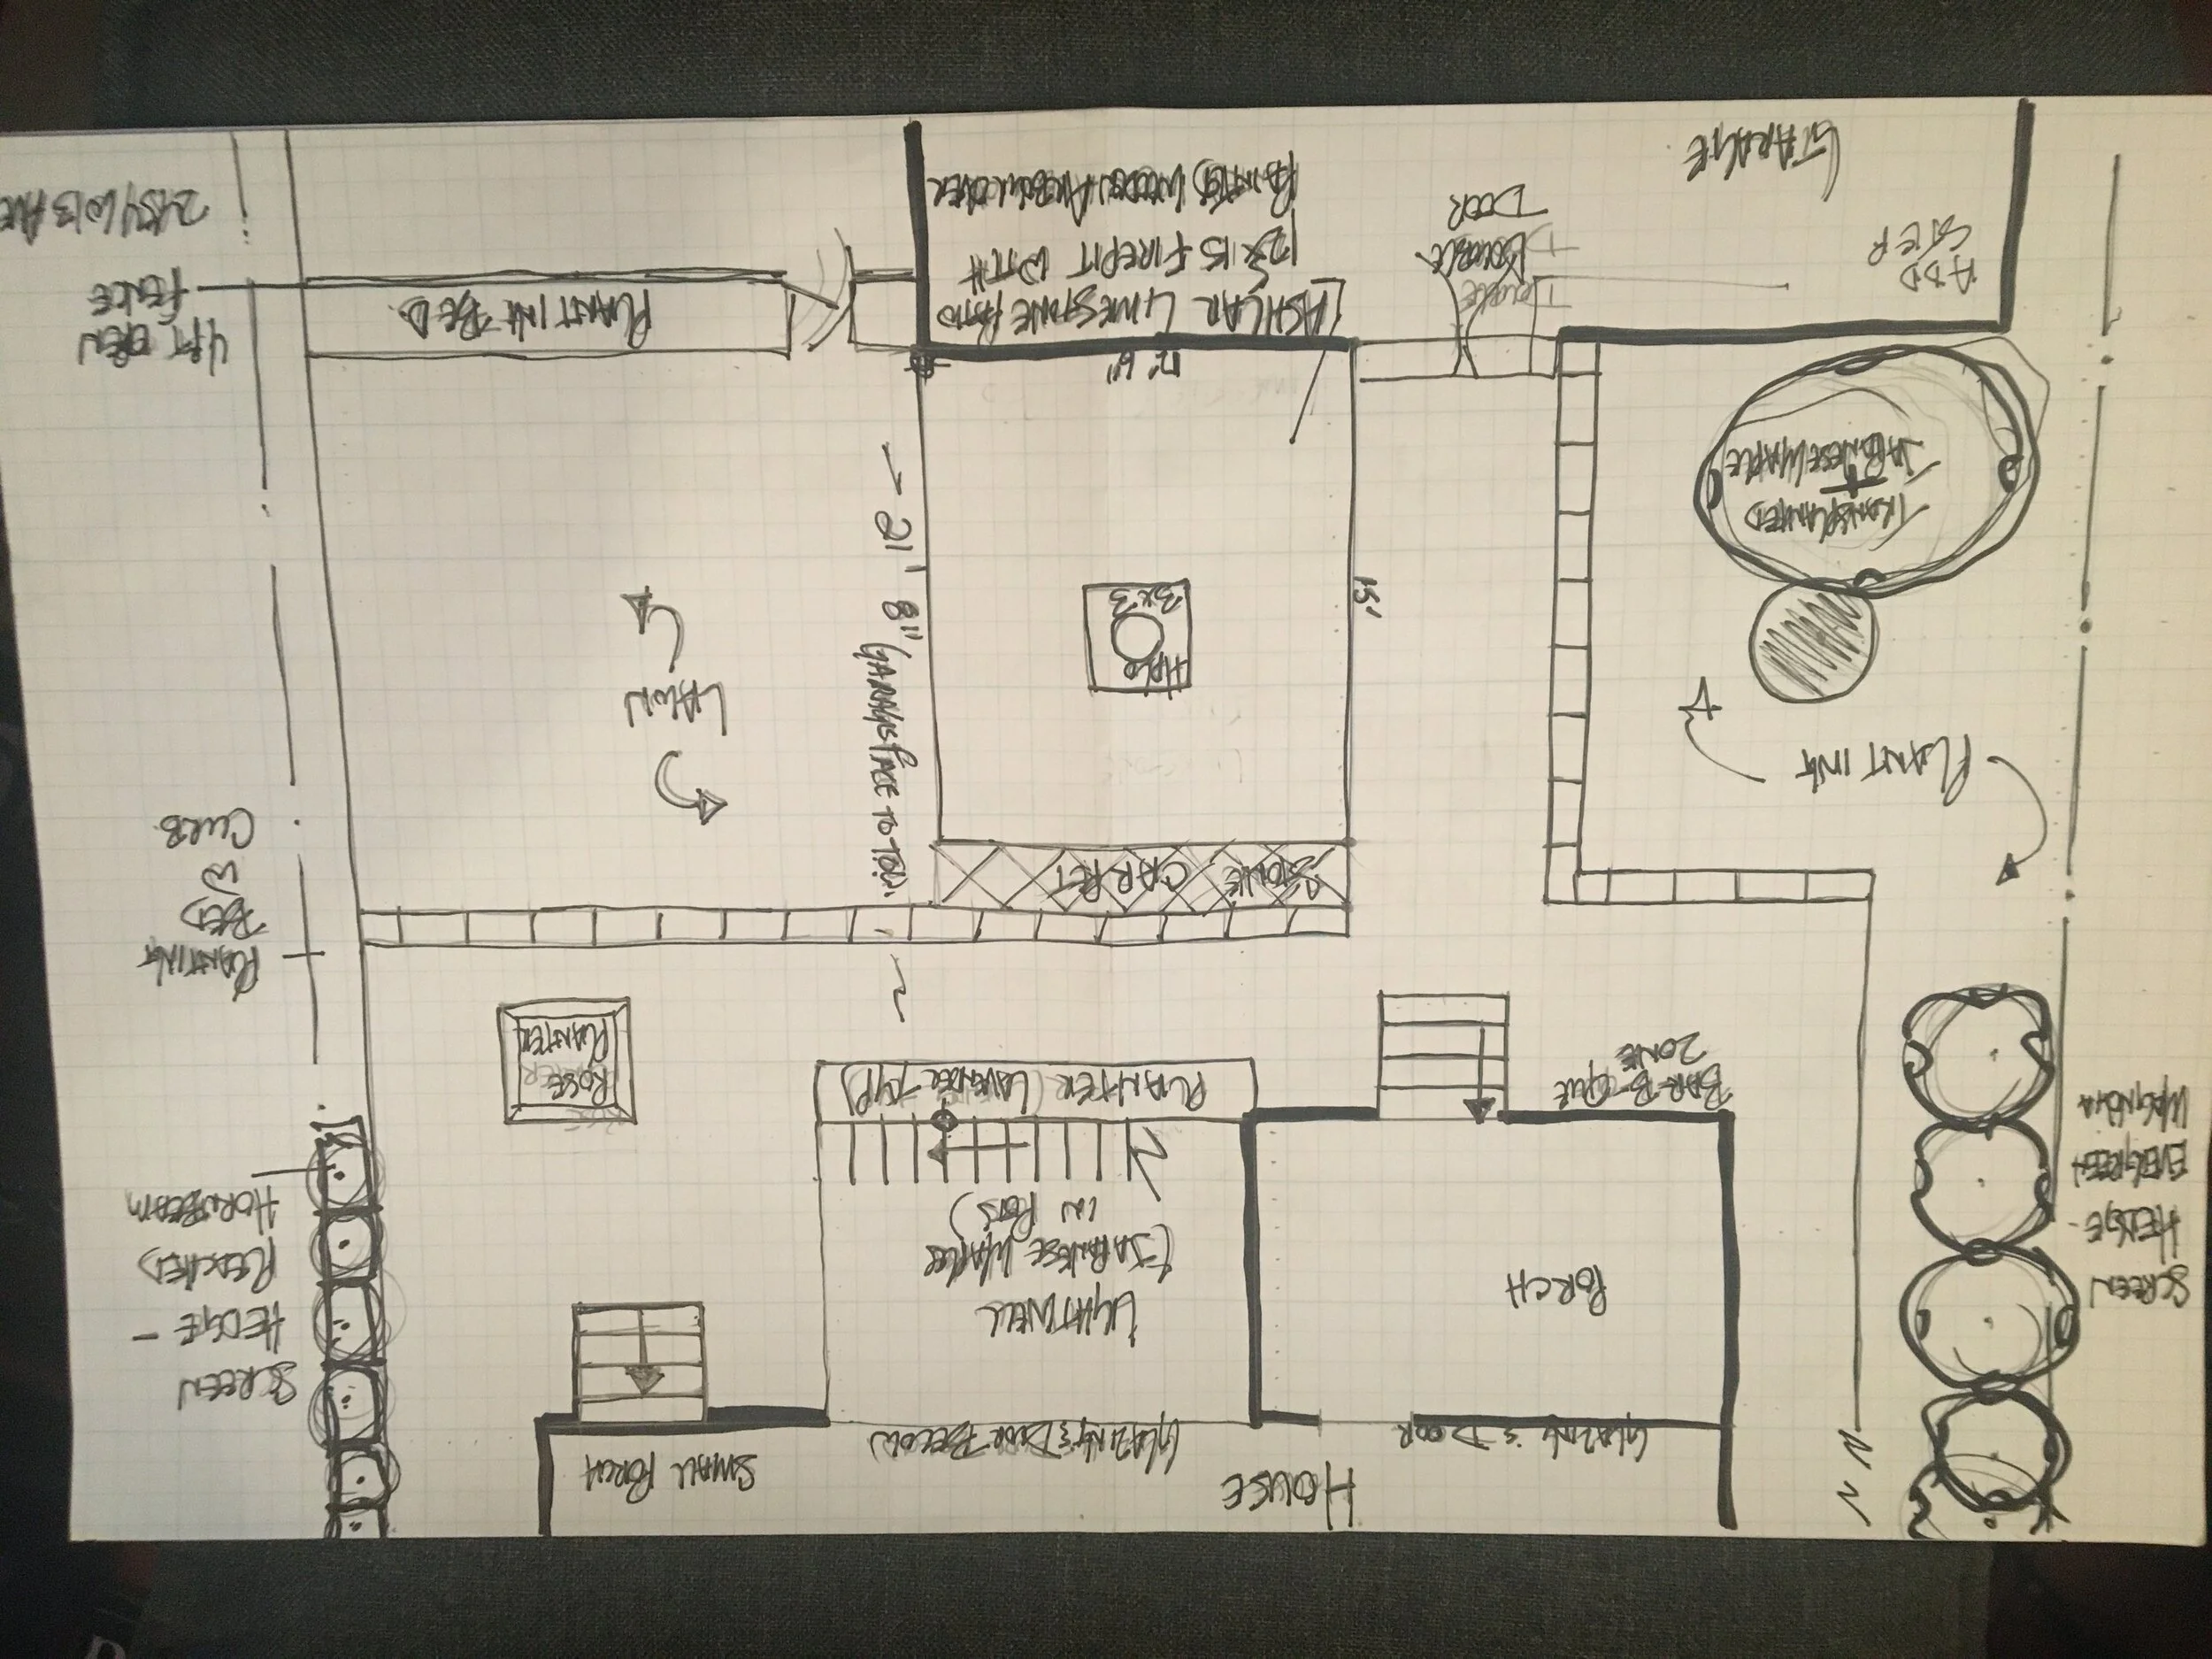 HOUSE
SMALL PORCH
GLAZING & DOOR BELOW
GLAZING & DOOR
SCREEN
HEDGE -
EVERGREEN
MAGNOLIA
PORCH
LIGHTWELL
(JAPANESE MAPLES
IN POTS)
SCREEN
HEDGE -
PLEACHED
HORNBEAM
BAR-B-QUE
ZONE
PLANTER (LAVENDER TYP)
ROSE
PLANTER
PLANTING
BED
W
CURB
STONE CARPET
PLANTING
LAWN
21' 8" GARAGE FACE TO TRIM
HPC
3x3
15'
TRANSPLANTED
JAPANESE MAPLE
12' 6"
4FT OPEN
FENCE
PLANTING BED
ASHLAR LIMESTONE PATIO
12x15 FIREPIT WITH
PAINTED WOODEN ARBOUR OVER
DOUBLE
DOOR
ADD
STEP
GARAGE
2154 W 13 AVE